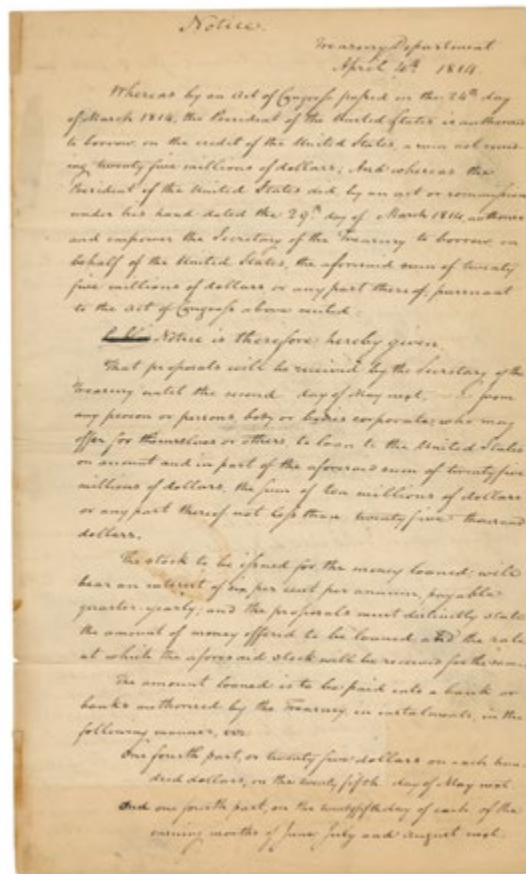 Notice.
Treasury Department
April 4th 1814.
Whereas by an Act of Congress passed on the 24th day
of March 1814, the President of the United States is authorised
to borrow, on the credit of the United States, a sum not exceed-
ing twenty five millions of dollars; And whereas the
President of the United States did, by an act or commission
under his hand dated the 29th day of March 1814, authorise
and empower the Secretary of the Treasury to borrow, on
behalf of the United States, the aforesaid sum of twenty
five millions of dollars or any part thereof, pursuant
to the Act of Congress above recited:
Notice is therefore hereby given
That proposals will be received by the Secretary of the
Treasury until the second day of May next, from
any person or persons, body or bodies corporate, who may
offer for themselves or others, to loan to the United States
on account and in part of the aforesaid sum of twenty five
millions of dollars, the sum of ten millions of dollars
or any part thereof not less than twenty five thousand
dollars.
The stock to be issued for the money loaned, will
bear an interest of six per cent per annum, payable
quarter-yearly; and the proposals must distinctly state
the amount of money offered to be loaned and the rate
at which the aforesaid stock will be received for the same.
The amount loaned is to be paid into a bank or
banks authorised by the Treasury, in instalments, in the
following manner, viz:
One fourth part, or twenty five dollars on each hun-
dred dollars, on the twenty fifth day of May next.
And one fourth part, on the twenty fifth day of each of the
ensuing months of June July and August next.